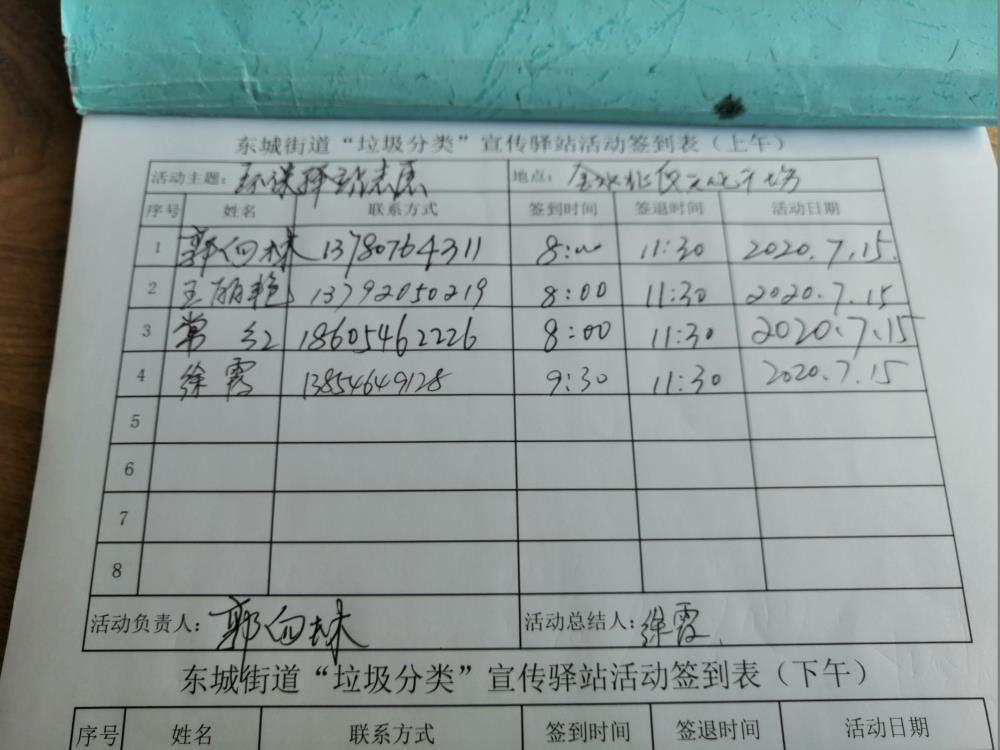 东城街道“垃圾分类”宣传驿站活动签到表（上午）
活动主题：环保驿站志愿 地点：
序号 姓名 联系方式 签到时间 签退时间 活动日期
1 郭向林 13780764311 8:00 11:30 2020.7.15.
2 王丽艳 13792050219 8:00 11:30 2020.7.15
3 常红 18605462226 8:00 11:30 2020.7.15
4 徐霞 13854649128 9:30 11:30 2020.7.15
5
6
7
8
活动负责人：郭向林 活动总结人：徐霞.
东城街道“垃圾分类”宣传驿站活动签到表（下午）
序号 姓名 联系方式 签到时间 签退时间 活动日期